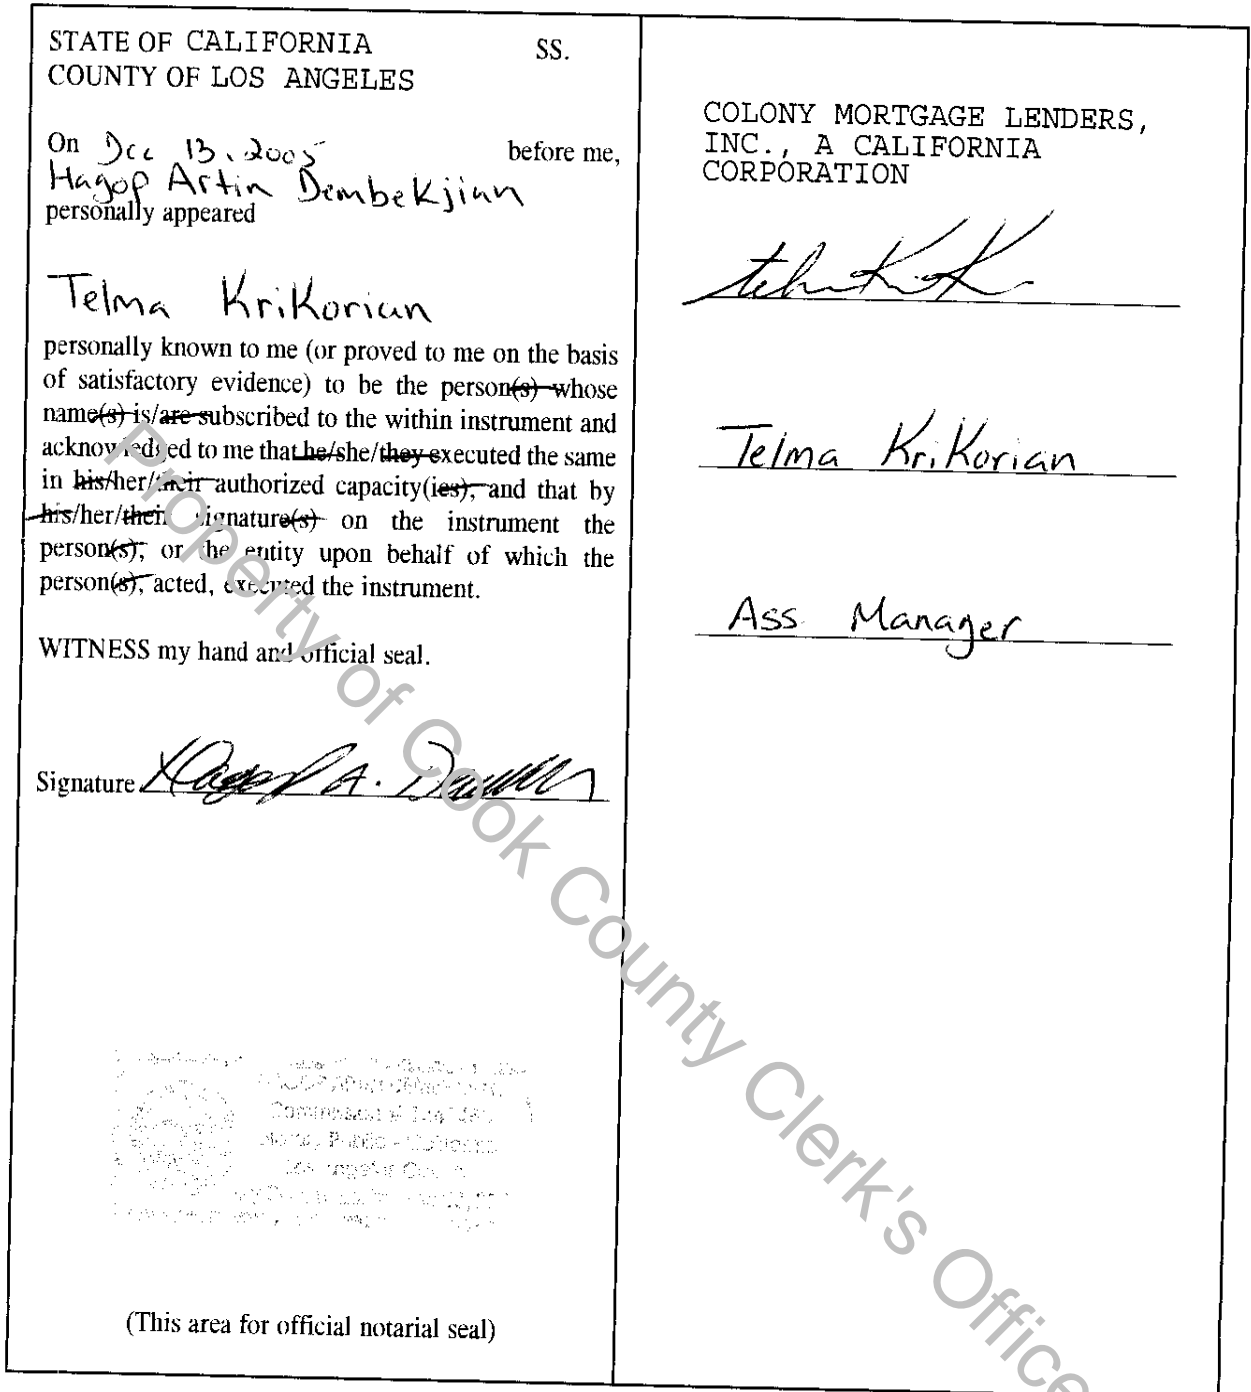 STATE OF CALIFORNIA SS.
COUNTY OF LOS ANGELES
On Dec 13, 2005 before me,
Hagop Artin Dembekjian
personally appeared
Telma Krikorian
personally known to me (or proved to me on the basis
of satisfactory evidence) to be the person(s) whose
name(s) is/are subscribed to the within instrument and
acknowledged to me that he/she/they executed the same
in his/her/their authorized capacity(ies), and that by
his/her/their signature(s) on the instrument the
person(s), or the entity upon behalf of which the
person(s), acted, executed the instrument.
WITNESS my hand and official seal.
Signature Hagop A.
Notary Public - California
Los Angeles County
(This area for official notarial seal)
COLONY MORTGAGE LENDERS,
INC., A CALIFORNIA
CORPORATION
Telma Krikorian
Ass. Manager
Property of Cook County Clerk's Office